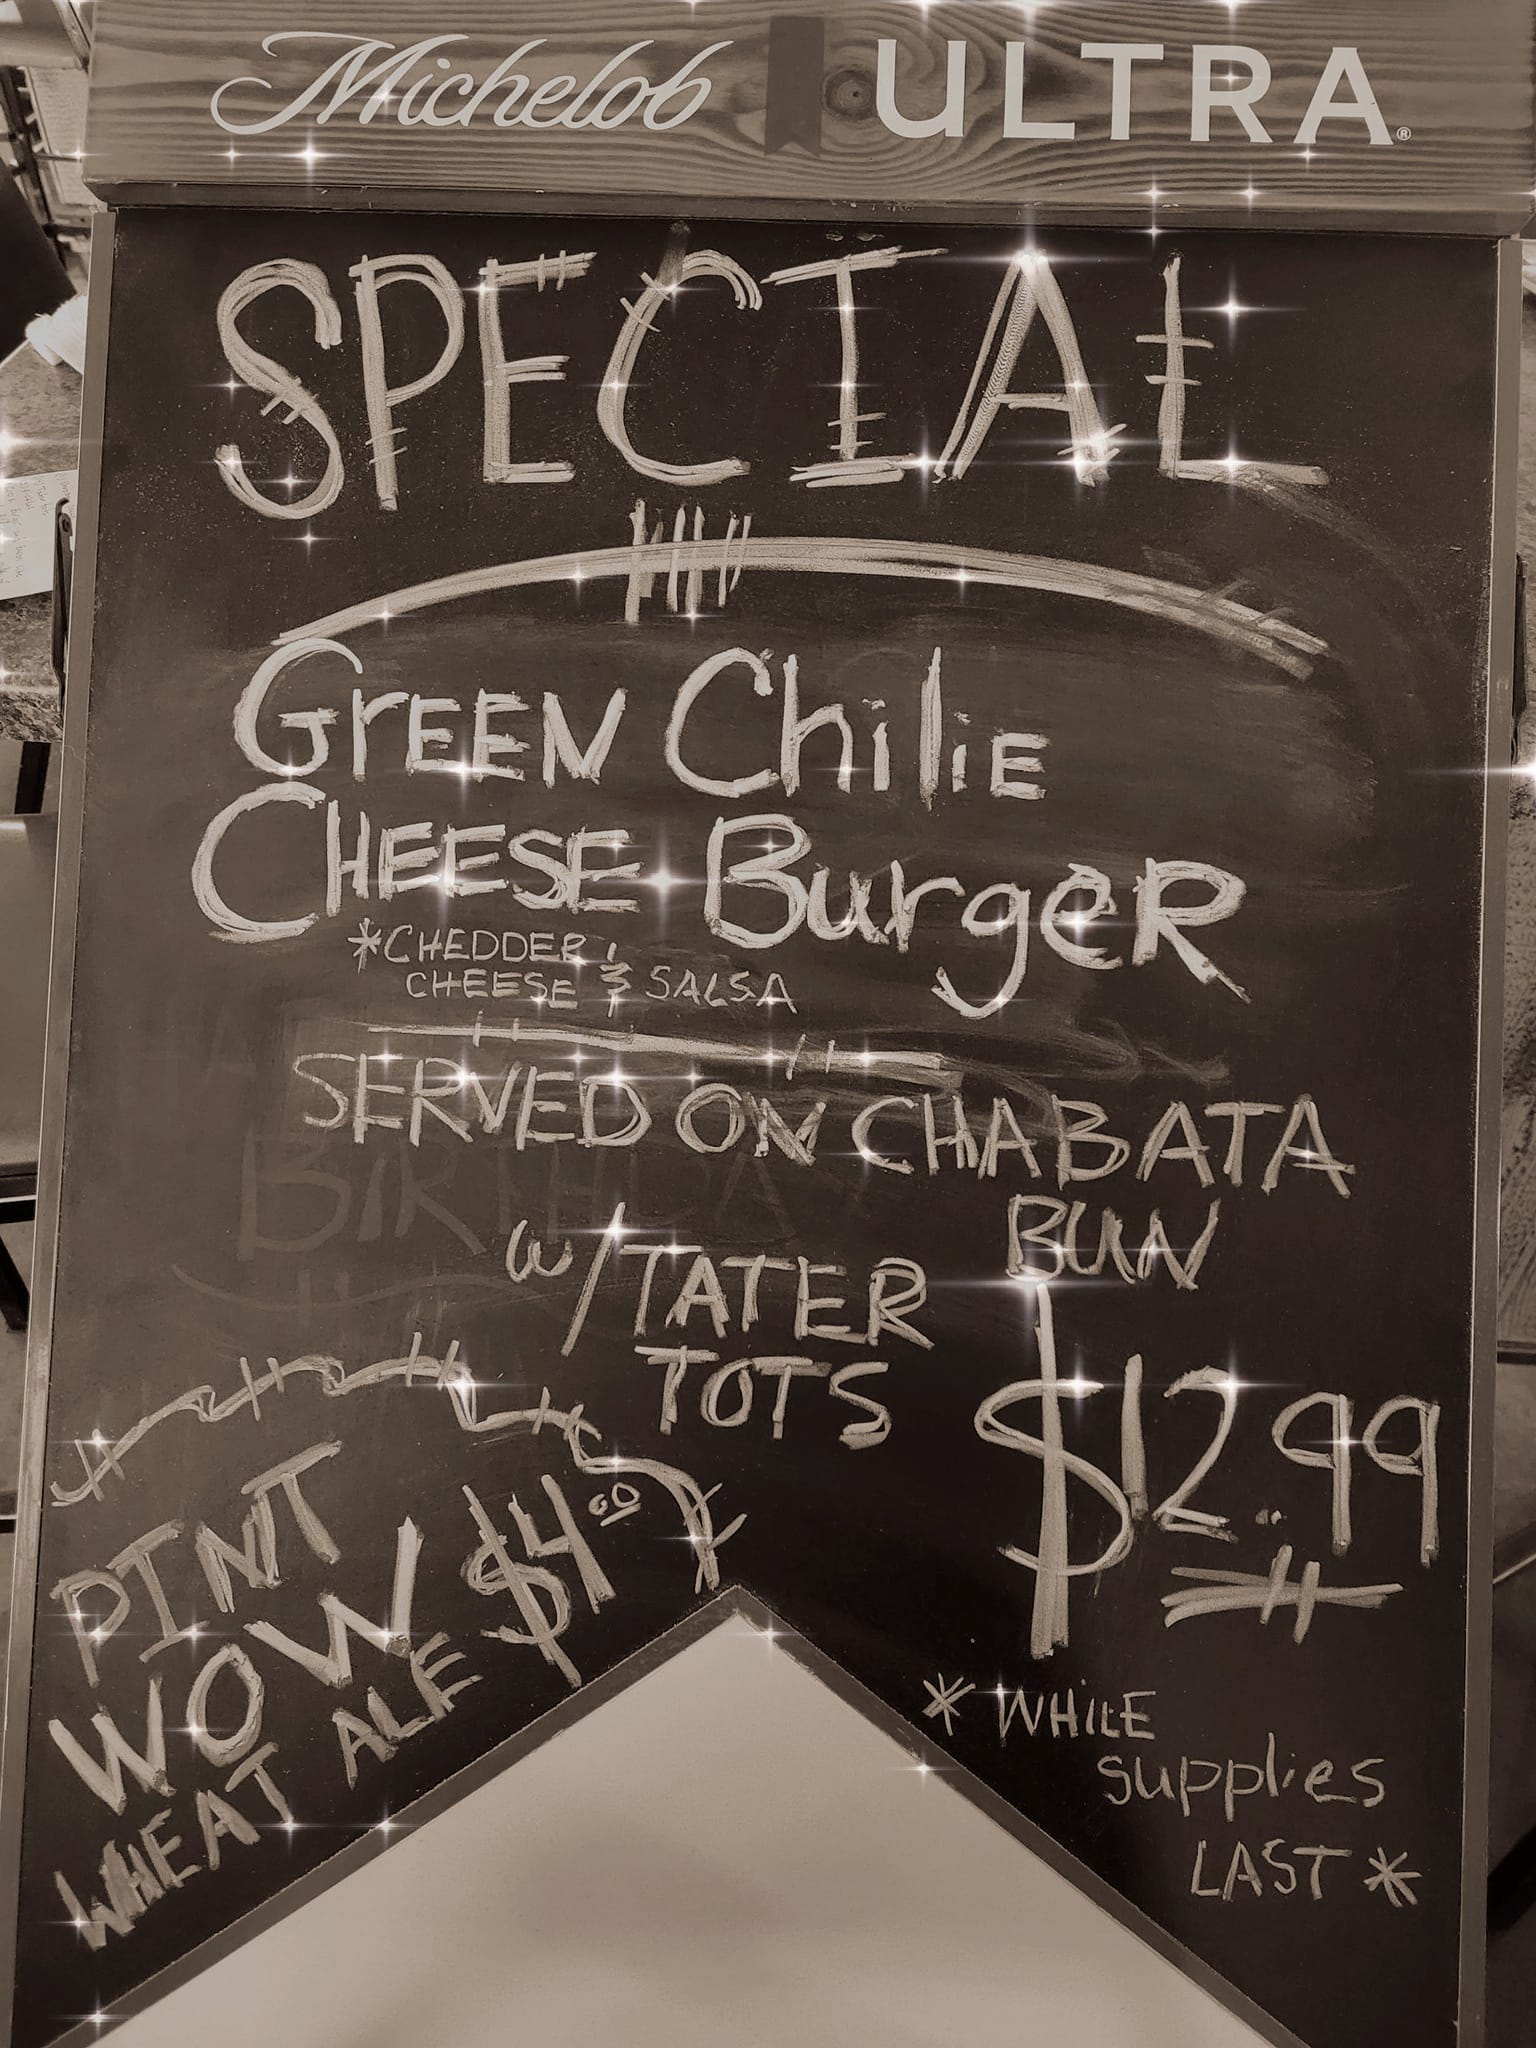 Michelob ULTRA®
SPECIAL
GREEN ChiliE
CHEESE BurgeR
*CHEDDER &
CHEESE SALSA
SERVED ON CHABATA
BUN
W/TATER
TOTS
$12.99
PINT
WOW $4.00
WHEAT ALE
* WHILE
supplies
LAST *
BIRTHDAY